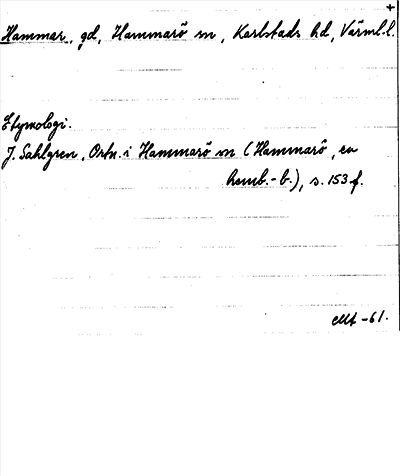 +
Hammar, gd, Hammarö sn, Karlstads hd, Värml.l.
Etymologi.
J. Sahlgren, Ortn. i Hammarö sn (Hammarö, en
hemb.-b.), s. 153 f.
-61.